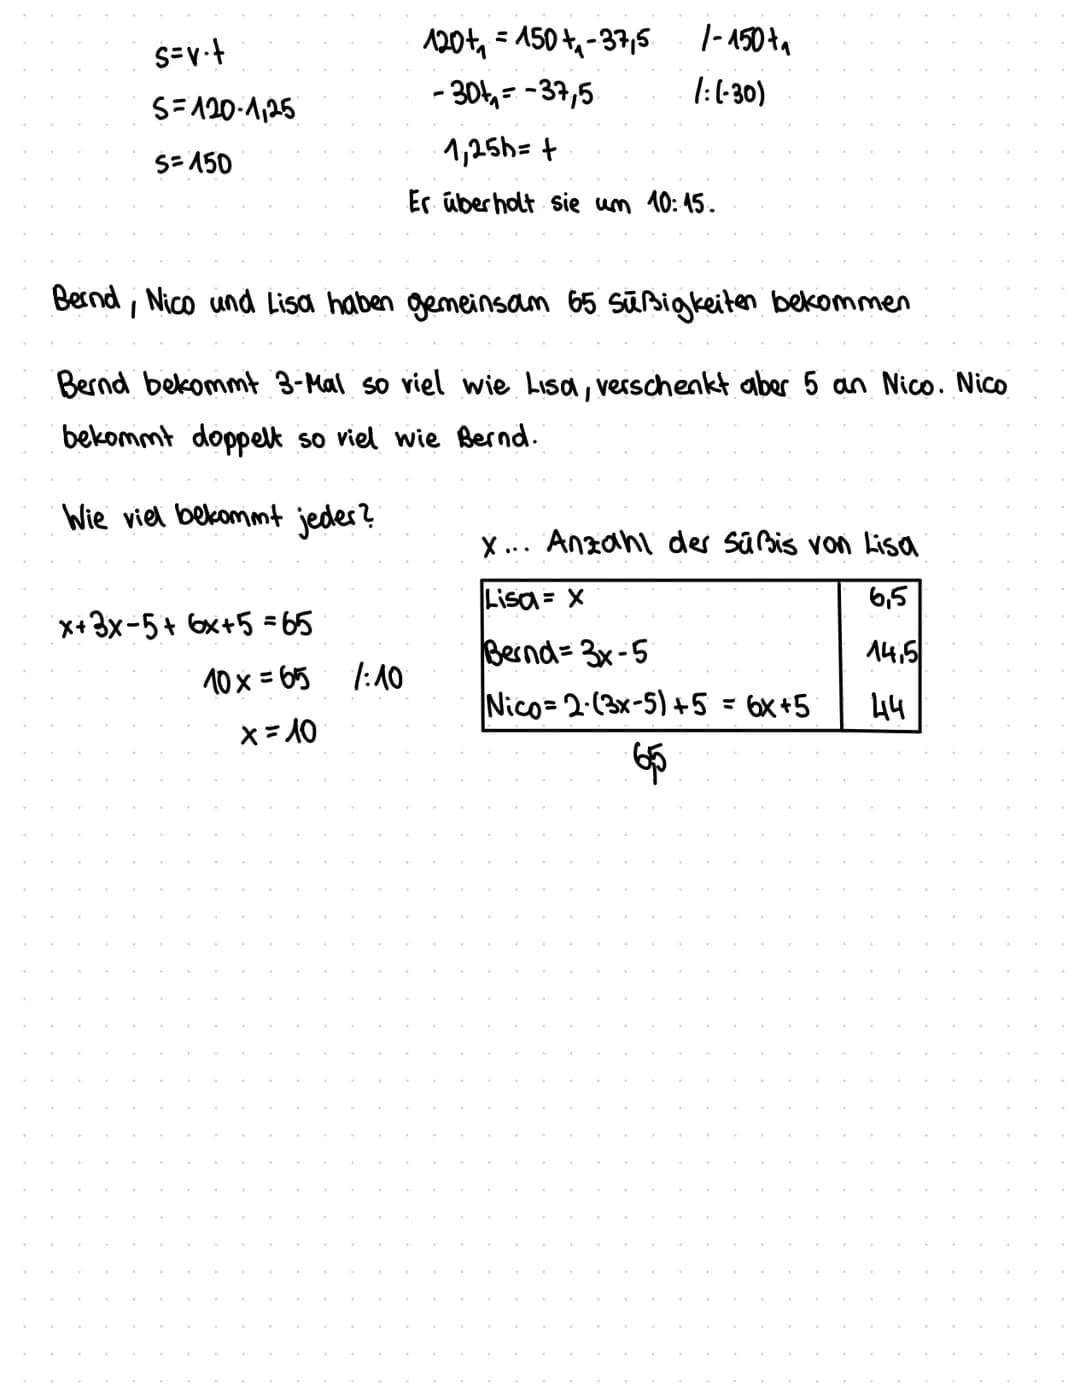 s=v·t
s=120·1,25
s=150
120t₁ = 150t₁-37,5 /-150t₁
-30t₁ = -37,5 /:(-30)
1,25h = t
Er überholt sie um 10:15.
Bernd, Nico und Lisa haben gemeinsam 65 Süßigkeiten bekommen
Bernd bekommt 3-Mal so viel wie Lisa, verschenkt aber 5 an Nico. Nico
bekommt doppelt so viel wie Bernd.
Wie viel bekommt jeder?
x... Anzahl der Süßis von Lisa
x+3x-5+6x+5=65
10x=65 /:10
x=10
Lisa= x 6,5
Bernd= 3x-5 14,5
Nico= 2·(3x-5)+5 = 6x+5 44
65